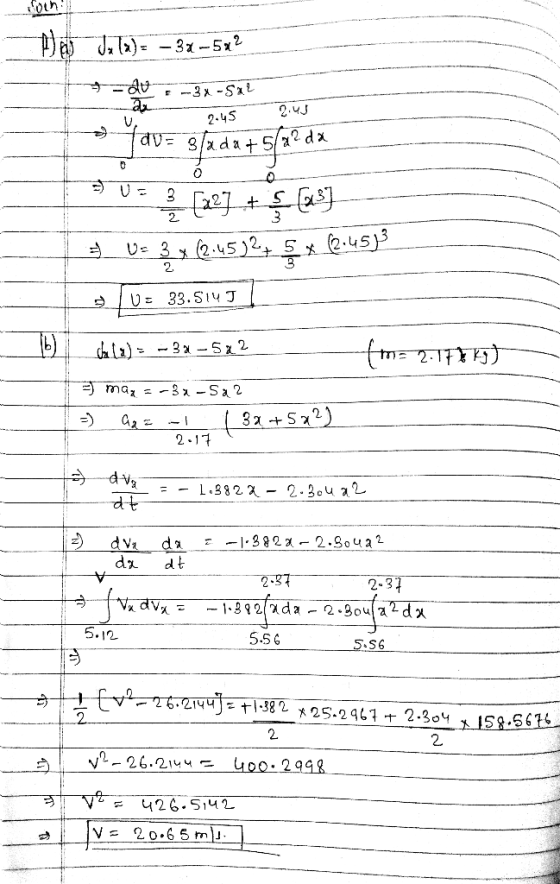 Soln:
1) (a) dx(x) = -3x - 5x2
⇒ - dU/dx = -3x - 5x2
⇒ ∫₀ᵁ dU = 3 ∫₀^2.45 x dx + 5 ∫₀^2.45 x2 dx
⇒ U = 3/2 [x2] + 5/3 [x3]
⇒ U = 3/2 × (2.45)2 + 5/3 × (2.45)3
⇒ U = 33.514 J
(b) dx(x) = -3x - 5x2 (m = 2.17 kg)
⇒ max = -3x - 5x2
⇒ ax = -1/2.17 (3x + 5x2)
⇒ dVx/dt = - 1.382x - 2.304x2
⇒ dVx/dx dx/dt = -1.382x - 2.304x2
⇒ ∫_5.12^V Vx dVx = -1.382 ∫_5.56^2.37 x dx - 2.304 ∫_5.56^2.37 x2 dx
⇒
⇒ 1/2 [V2 - 26.2144] = +1.382/2 × 25.2967 + 2.304/2 × 158.5676
⇒ V2 - 26.2144 = 400.2998
⇒ V2 = 426.5142
⇒ V = 20.65 m/s.